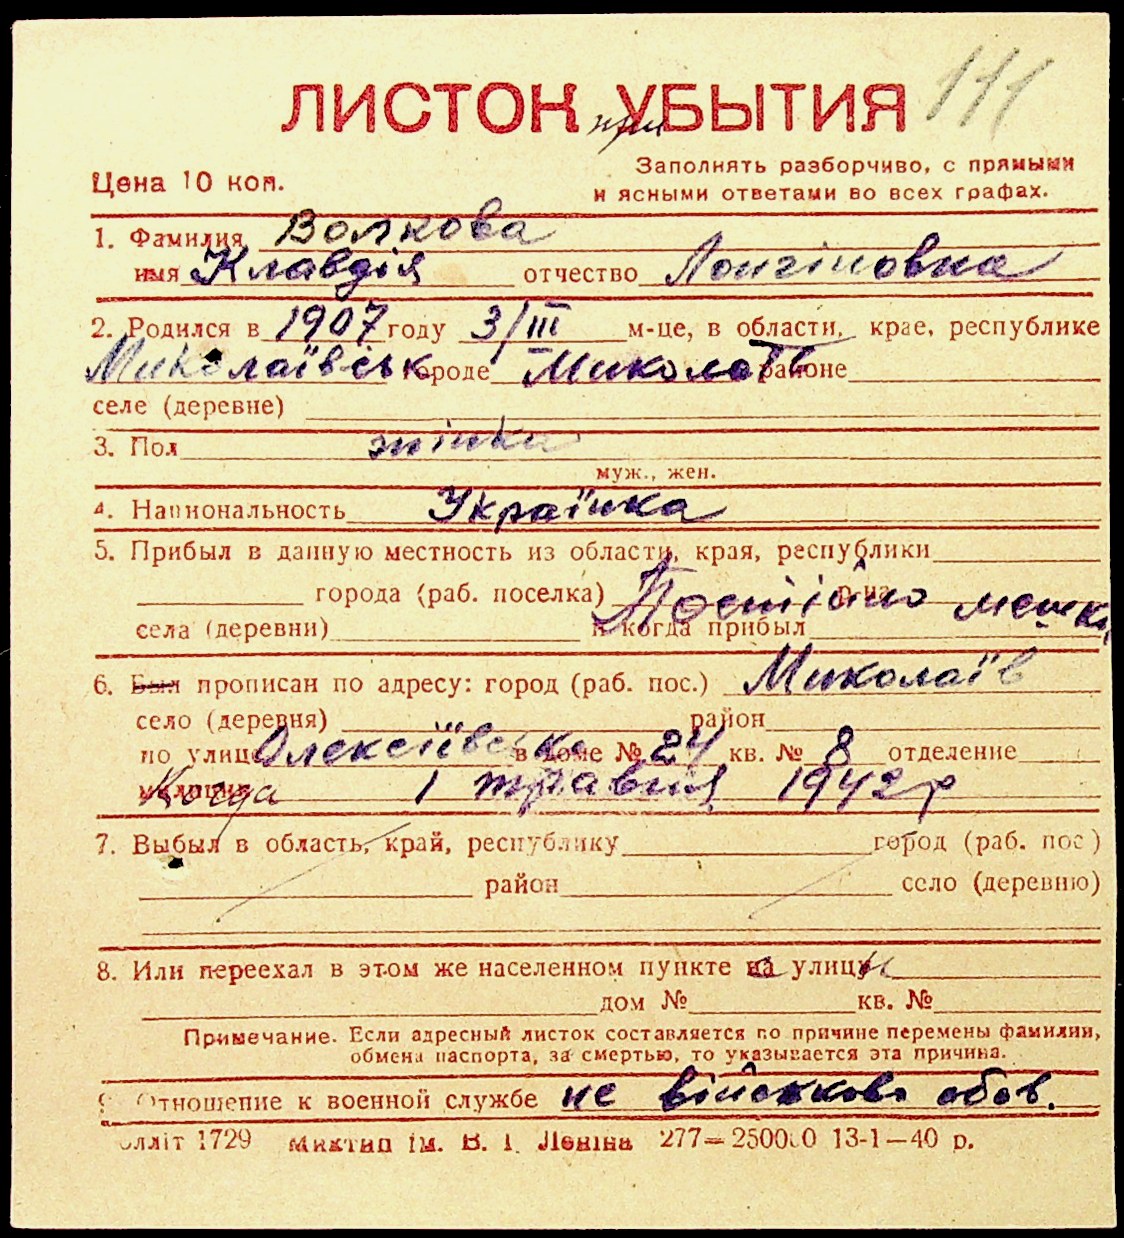 111
ЛИСТОК УБЫТИЯ
при
Заполнять разборчиво, с прямыми
Цена 10 коп.
и ясными ответами во всех графах.
1. Фамилия Волкова
имя Клавдія отчество Лонгіновна
2. Родился в 1907 году 3/III м-це, в области, крае, республике
Миколаївськ городе Миколаїв районе
селе (деревне)
3. Пол жінка
муж., жен.
4. Национальность Українка
5. Прибыл в данную местность из области, края, республики
города (раб. поселка) р-на
Постійно мешк
села (деревни) и когда прибыл
6. Был прописан по адресу: город (раб. пос.) Миколаїв
село (деревня) район
по улице Олексіївська в доме № 24 кв. № 8 отделение
милиции Когда 1 травня 1942 р
7. Выбыл в область, край, республику город (раб. пос)
район село (деревню)
8. Или переехал в этом же населенном пункте на улицу
дом № кв. №
Примечание. Если адресный листок составляется по причине перемены фамилии,
обмена паспорта, за смертью, то указывается эта причина.
9. Отношение к военной службе не військово обов.
олліт 1729 Миктип ім. В. І. Леніна 277—250000 13-1—40 р.